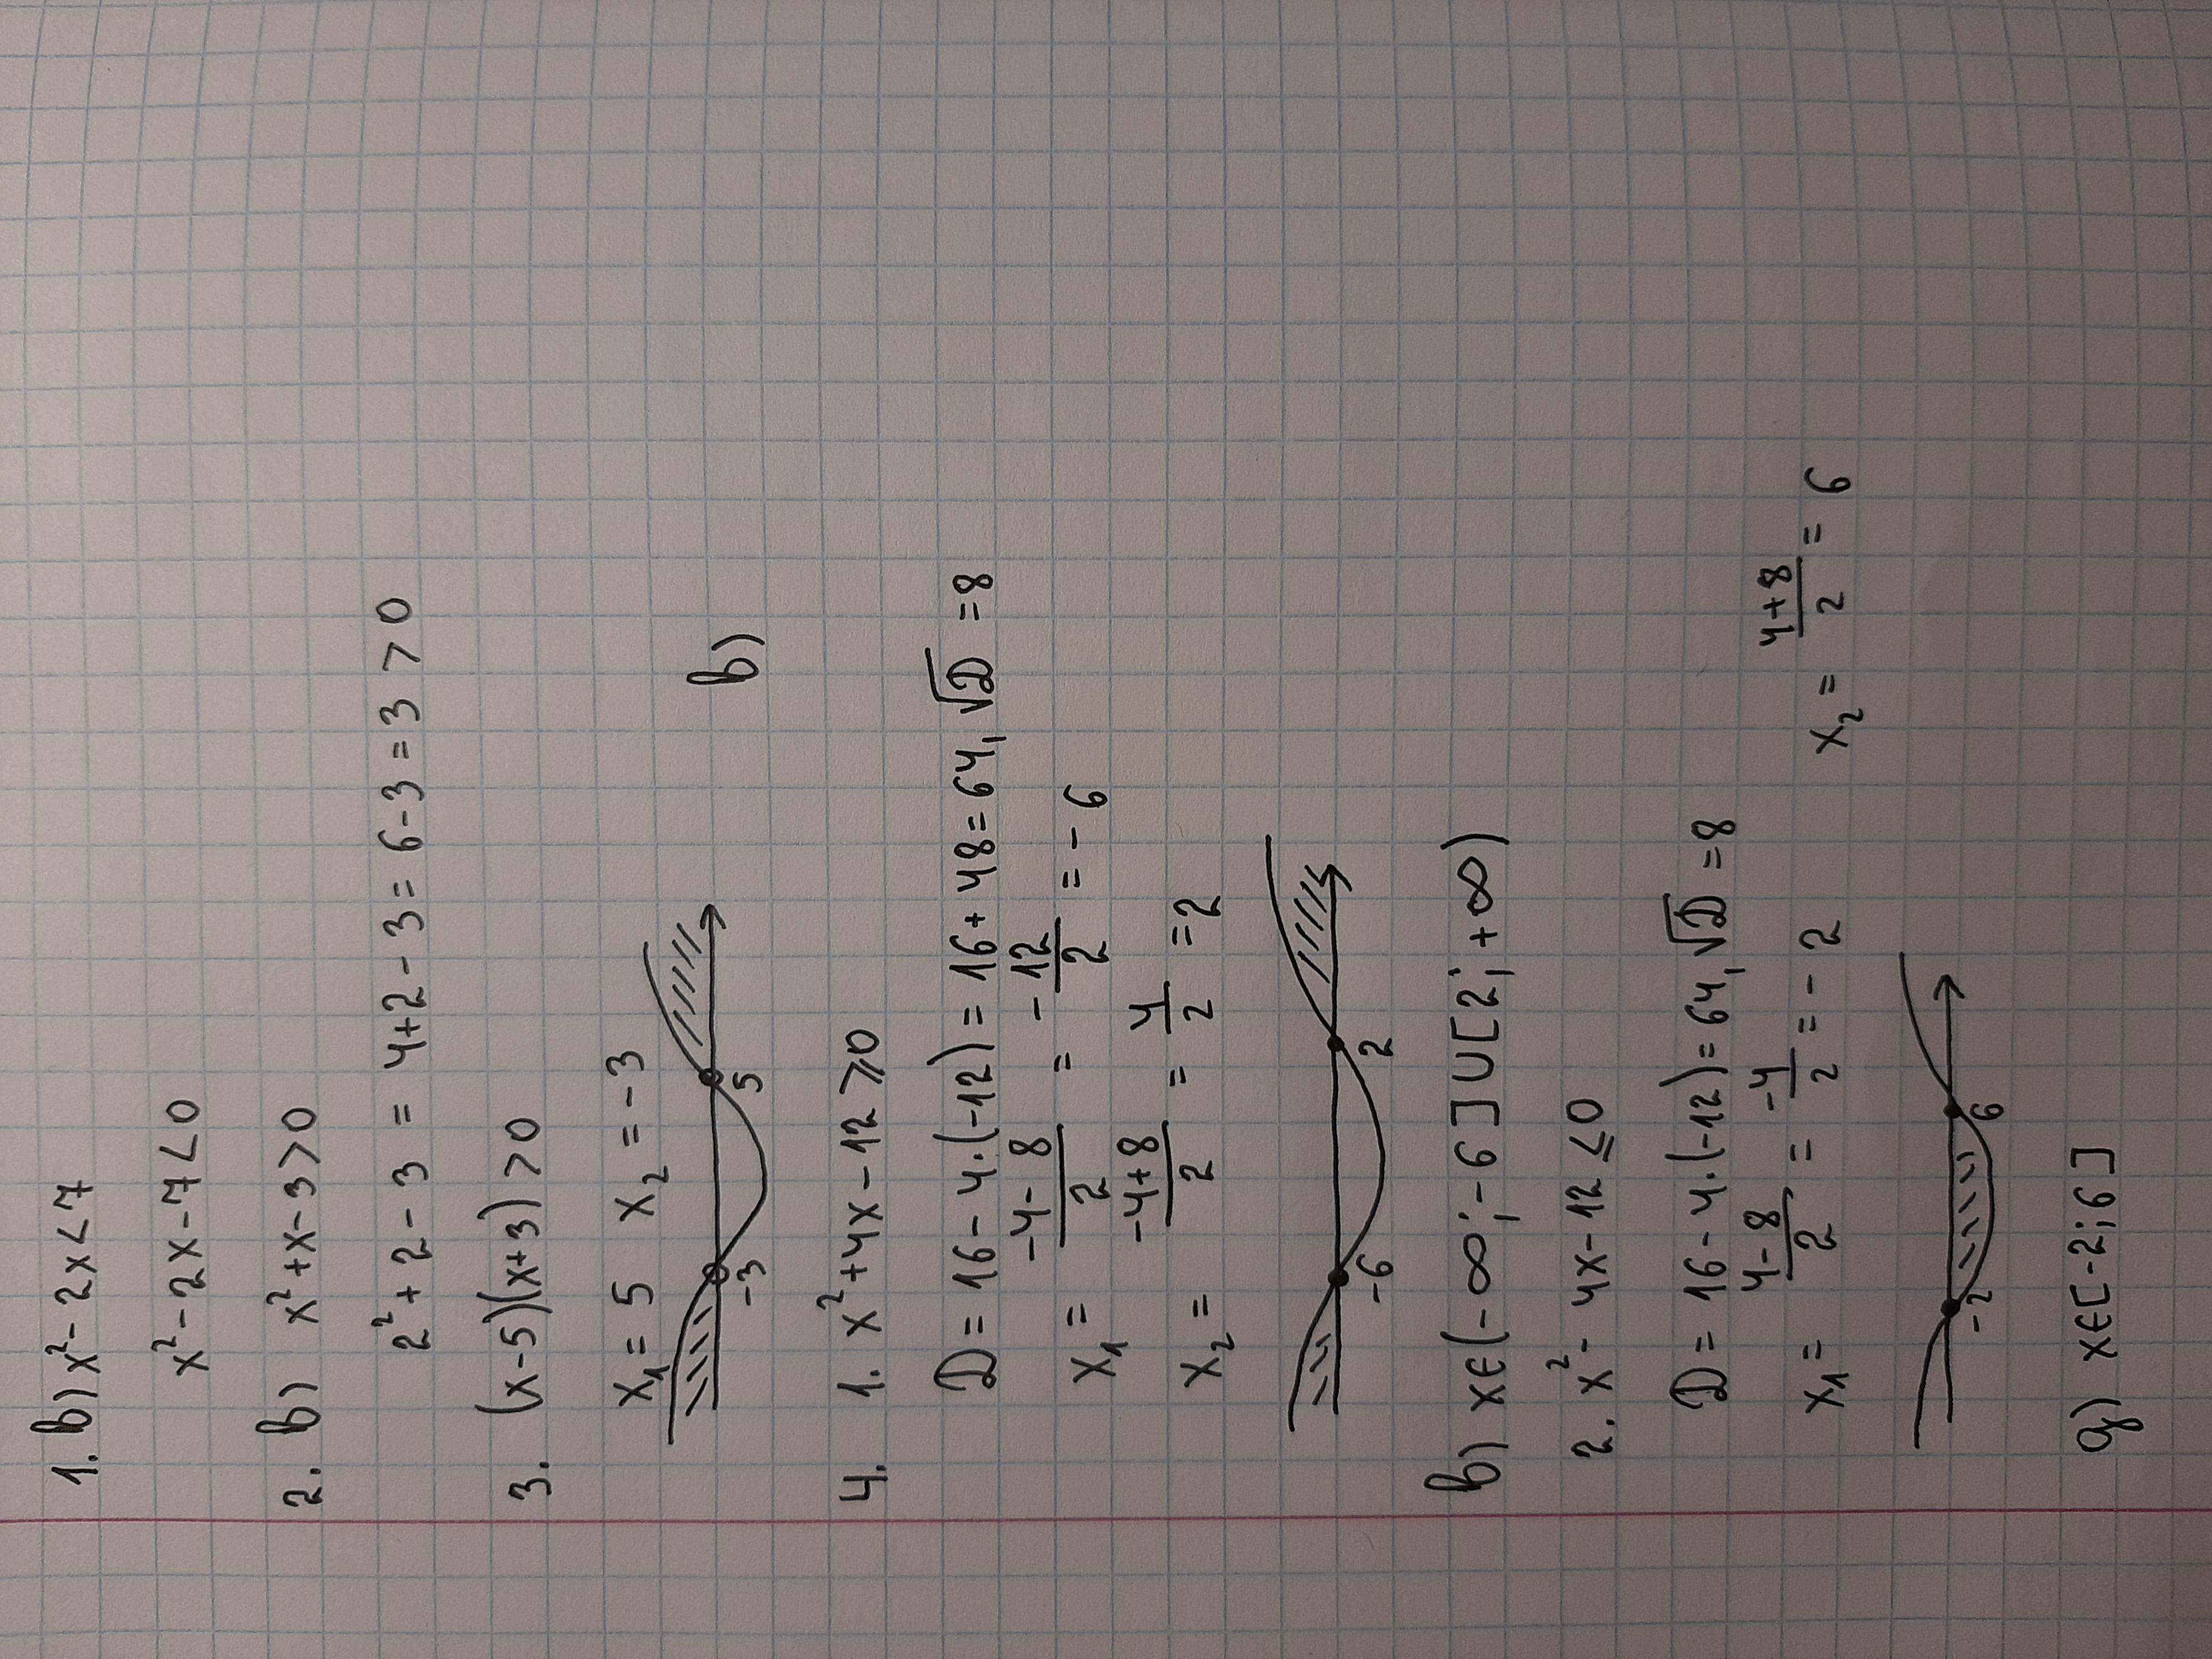 1. b) x² - 2x < 7
x² - 2x - 7 < 0
2. b) x² + x - 3 > 0
2² + 2 - 3 = 4 + 2 - 3 = 6 - 3 = 3 > 0
3. (x - 5)(x + 3) > 0
x₁ = 5 x₂ = -3
-3 5 b)
4. 1. x² + 4x - 12 ⩾ 0
D = 16 - 4·(-12) = 16 + 48 = 64, √D = 8
x₁ = (-4 - 8)/2 = -12/2 = -6
x₂ = (-4 + 8)/2 = 4/2 = 2
-6 2
b) x∈(-∞; -6]∪[2; +∞)
2. x² - 4x - 12 ≤ 0
D = 16 - 4·(-12) = 64, √D = 8
x₁ = (4 - 8)/2 = -4/2 = -2 x₂ = (4 + 8)/2 = 6
-2 6
g) x∈[-2; 6]